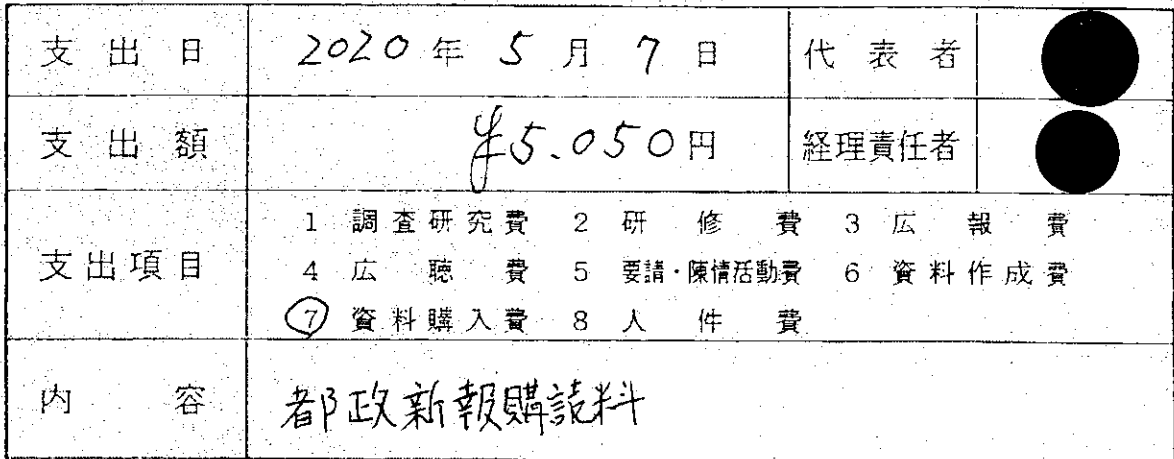 支出日 2020年5月7日 代表者
支出額 ¥5.050円 経理責任者
支出項目
1 調査研究費 2 研修費 3 広報費
4 広聴費 5 要請・陳情活動費 6 資料作成費
⑦ 資料購入費 8 人件費
内容 都政新報購読料